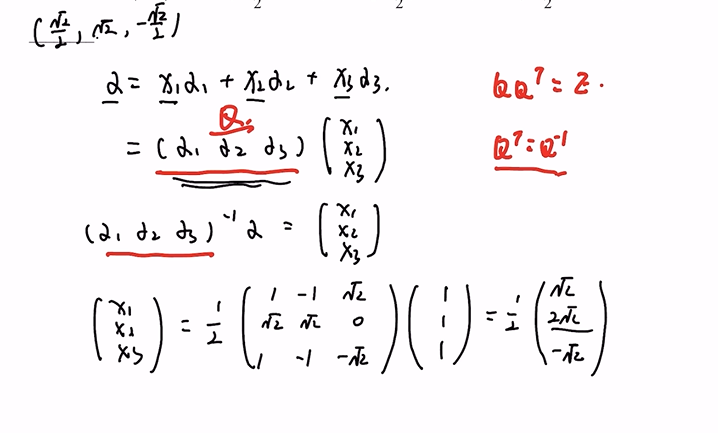 2 2 2
(√2/2, √2, -√2/2)
α = x₁α₁ + x₂α₂ + x₃α₃.
QQᵀ = E.
Q.
= (α₁ α₂ α₃) (x₁ x₂ x₃)
Qᵀ = Q⁻¹
(α₁ α₂ α₃)⁻¹ α = (x₁ x₂ x₃)
(x₁ x₂ x₃) = 1/2 (1 -1 √2 √2 √2 0 1 -1 -√2) (1 1 1) = 1/2 (√2 2√2 -√2)